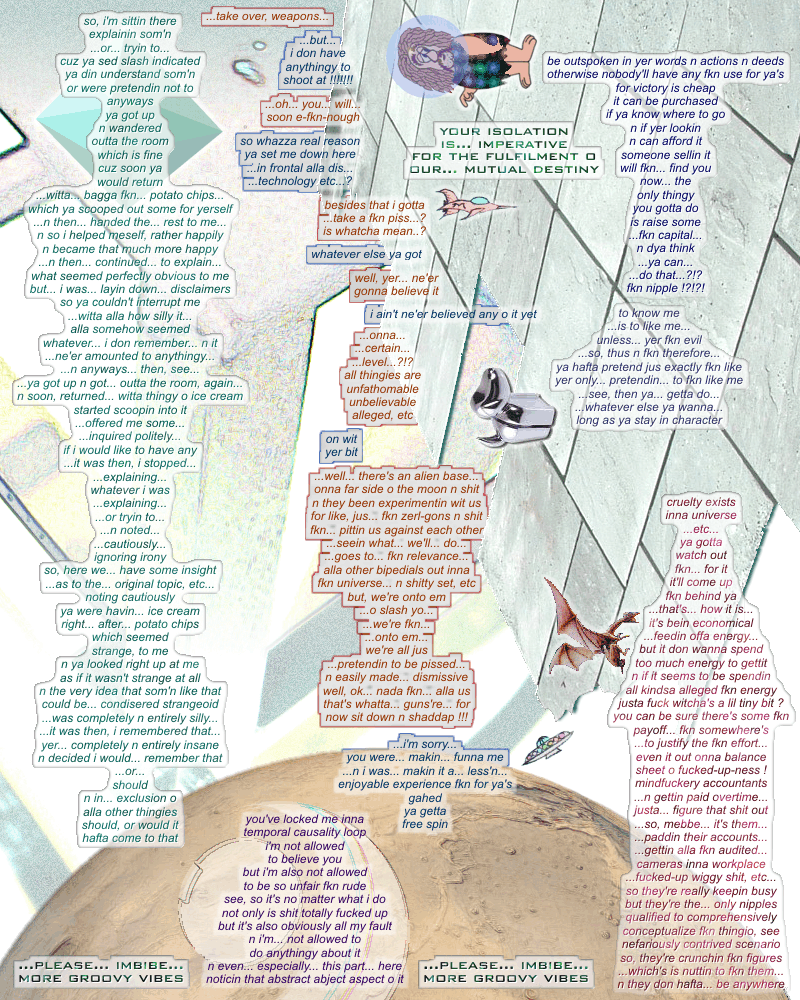 so, i'm sittin there
explainin som'n
...or... tryin to...
cuz ya sed slash indicated
ya din understand som'n
or were pretendin not to
anyways
ya got up
n wandered
outta the room
which is fine
cuz soon ya
would return
...witta... bagga fkn... potato chips...
which ya scooped out some for yerself
...n then... handed the... rest to me...
n so i helped meself, rather happily
n became that much more happy
...n then... continued... to explain...
what seemed perfectly obvious to me
but... i was... layin down... disclaimers
so ya couldn't interrupt me
...witta alla how silly it...
alla somehow seemed
whatever... i don remember... n it
...ne'er amounted to anythingy...
...n anyways... then, see...
...ya got up n got... outta the room, again...
n soon, returned... witta thingy o ice cream
started scoopin into it
...offered me some...
...inquired politely...
if i would like to have any
...it was then, i stopped...
...explaining...
whatever i was
...explaining...
...or tryin to...
...n noted...
...cautiously...
ignoring irony
so, here we... have some insight
...as to the... original topic, etc...
noting cautiously
ya were havin... ice cream
right... after... potato chips
which seemed
strange, to me
n ya looked right up at me
as if it wasn't strange at all
n the very idea that som'n like that
could be... condisered strangeoid
...was completely n entirely silly...
...it was then, i remembered that...
yer... completely n entirely insane
n decided i would... remember that
...or...
should
n in... exclusion o
alla other thingies
should, or would it
hafta come to that
...take over, weapons...
...but...
i don have
anythingy to
shoot at !!!!!!!
...oh... you... will...
soon e-fkn-nough
so whazza real reason
ya set me down here
...in frontal alla dis...
...technology etc...?
besides that i gotta
...take a fkn piss...?
is whatcha mean..?
whatever else ya got
well, yer... ne'er
gonna believe it
i ain't ne'er believed any o it yet
...onna...
...certain...
...level...?!?
all thingies are
unfathomable
unbelievable
alleged, etc
on wit
yer bit
...well... there's an alien base...
onna far side o the moon n shit
n they been experimentin wit us
for like, jus... fkn zerl-gons n shit
fkn... pittin us against each other
...seein what... we'll... do...
...goes to... fkn relevance...
alla other bipedials out inna
fkn universe... n shitty set, etc
but, we're onto em
...o slash yo...
...we're fkn...
...onto em...
we're all jus
...pretendin to be pissed...
n easily made... dismissive
well, ok... nada fkn... alla us
that's whatta... guns're... for
now sit down n shaddap !!!
...i'm sorry...
you were... makin... funna me
...n i was... makin it a... less'n...
enjoyable experience fkn for ya's
gahed
ya getta
free spin
you've locked me inna
temporal causality loop
i'm not allowed
to believe you
but i'm also not allowed
to be so unfair fkn rude
see, so it's no matter what i do
not only is shit totally fucked up
but it's also obviously all my fault
n i'm... not allowed to
do anythingy about it
n even... especially... this part... here
noticin that abstract abject aspect o it
...PLEASE... IMBIBE...
MORE GROOVY VIBES
...PLEASE... IMBIBE...
MORE GROOVY VIBES
YOUR ISOLATION
IS... IMPERATIVE
FOR THE FULFILMENT O
OUR... MUTUAL DESTINY
be outspoken in yer words n actions n deeds
otherwise nobody'll have any fkn use for ya's
for victory is cheap
it can be purchased
if ya know where to go
n if yer lookin
n can afford it
someone sellin it
will fkn... find you
now... the
only thingy
you gotta do
is raise some
...fkn capital...
n dya think
...ya can...
...do that...?!?
fkn nipple !?!?!
to know me
...is to like me...
unless... yer fkn evil
...so, thus n fkn therefore...
ya hafta pretend jus exactly fkn like
yer only... pretendin... to fkn like me
...see, then ya... getta do...
...whatever else ya wanna...
long as ya stay in character
cruelty exists
inna universe
...etc...
ya gotta
watch out
fkn... for it
it'll come up
fkn behind ya
...that's... how it is...
it's bein economical
...feedin offa energy...
but it don wanna spend
too much energy to gettit
n if it seems to be spendin
all kindsa alleged fkn energy
justa fuck witcha's a lil tiny bit ?
you can be sure there's some fkn
payoff... fkn somewhere's
...to justify the fkn effort...
even it out onna balance
sheet o fucked-up-ness !
mindfuckery accountants
...n gettin paid overtime...
justa... figure that shit out
...so, mebbe... it's them...
...paddin their accounts...
...gettin alla fkn audited...
cameras inna workplace
...fucked-up wiggy shit, etc...
so they're really keepin busy
but they're the... only nipples
qualified to comprehensively
conceptualize fkn thingio, see
nefariously contrived scenario
so, they're crunchin fkn figures
...which's is nuttin to fkn them...
n they don hafta... be anywhere